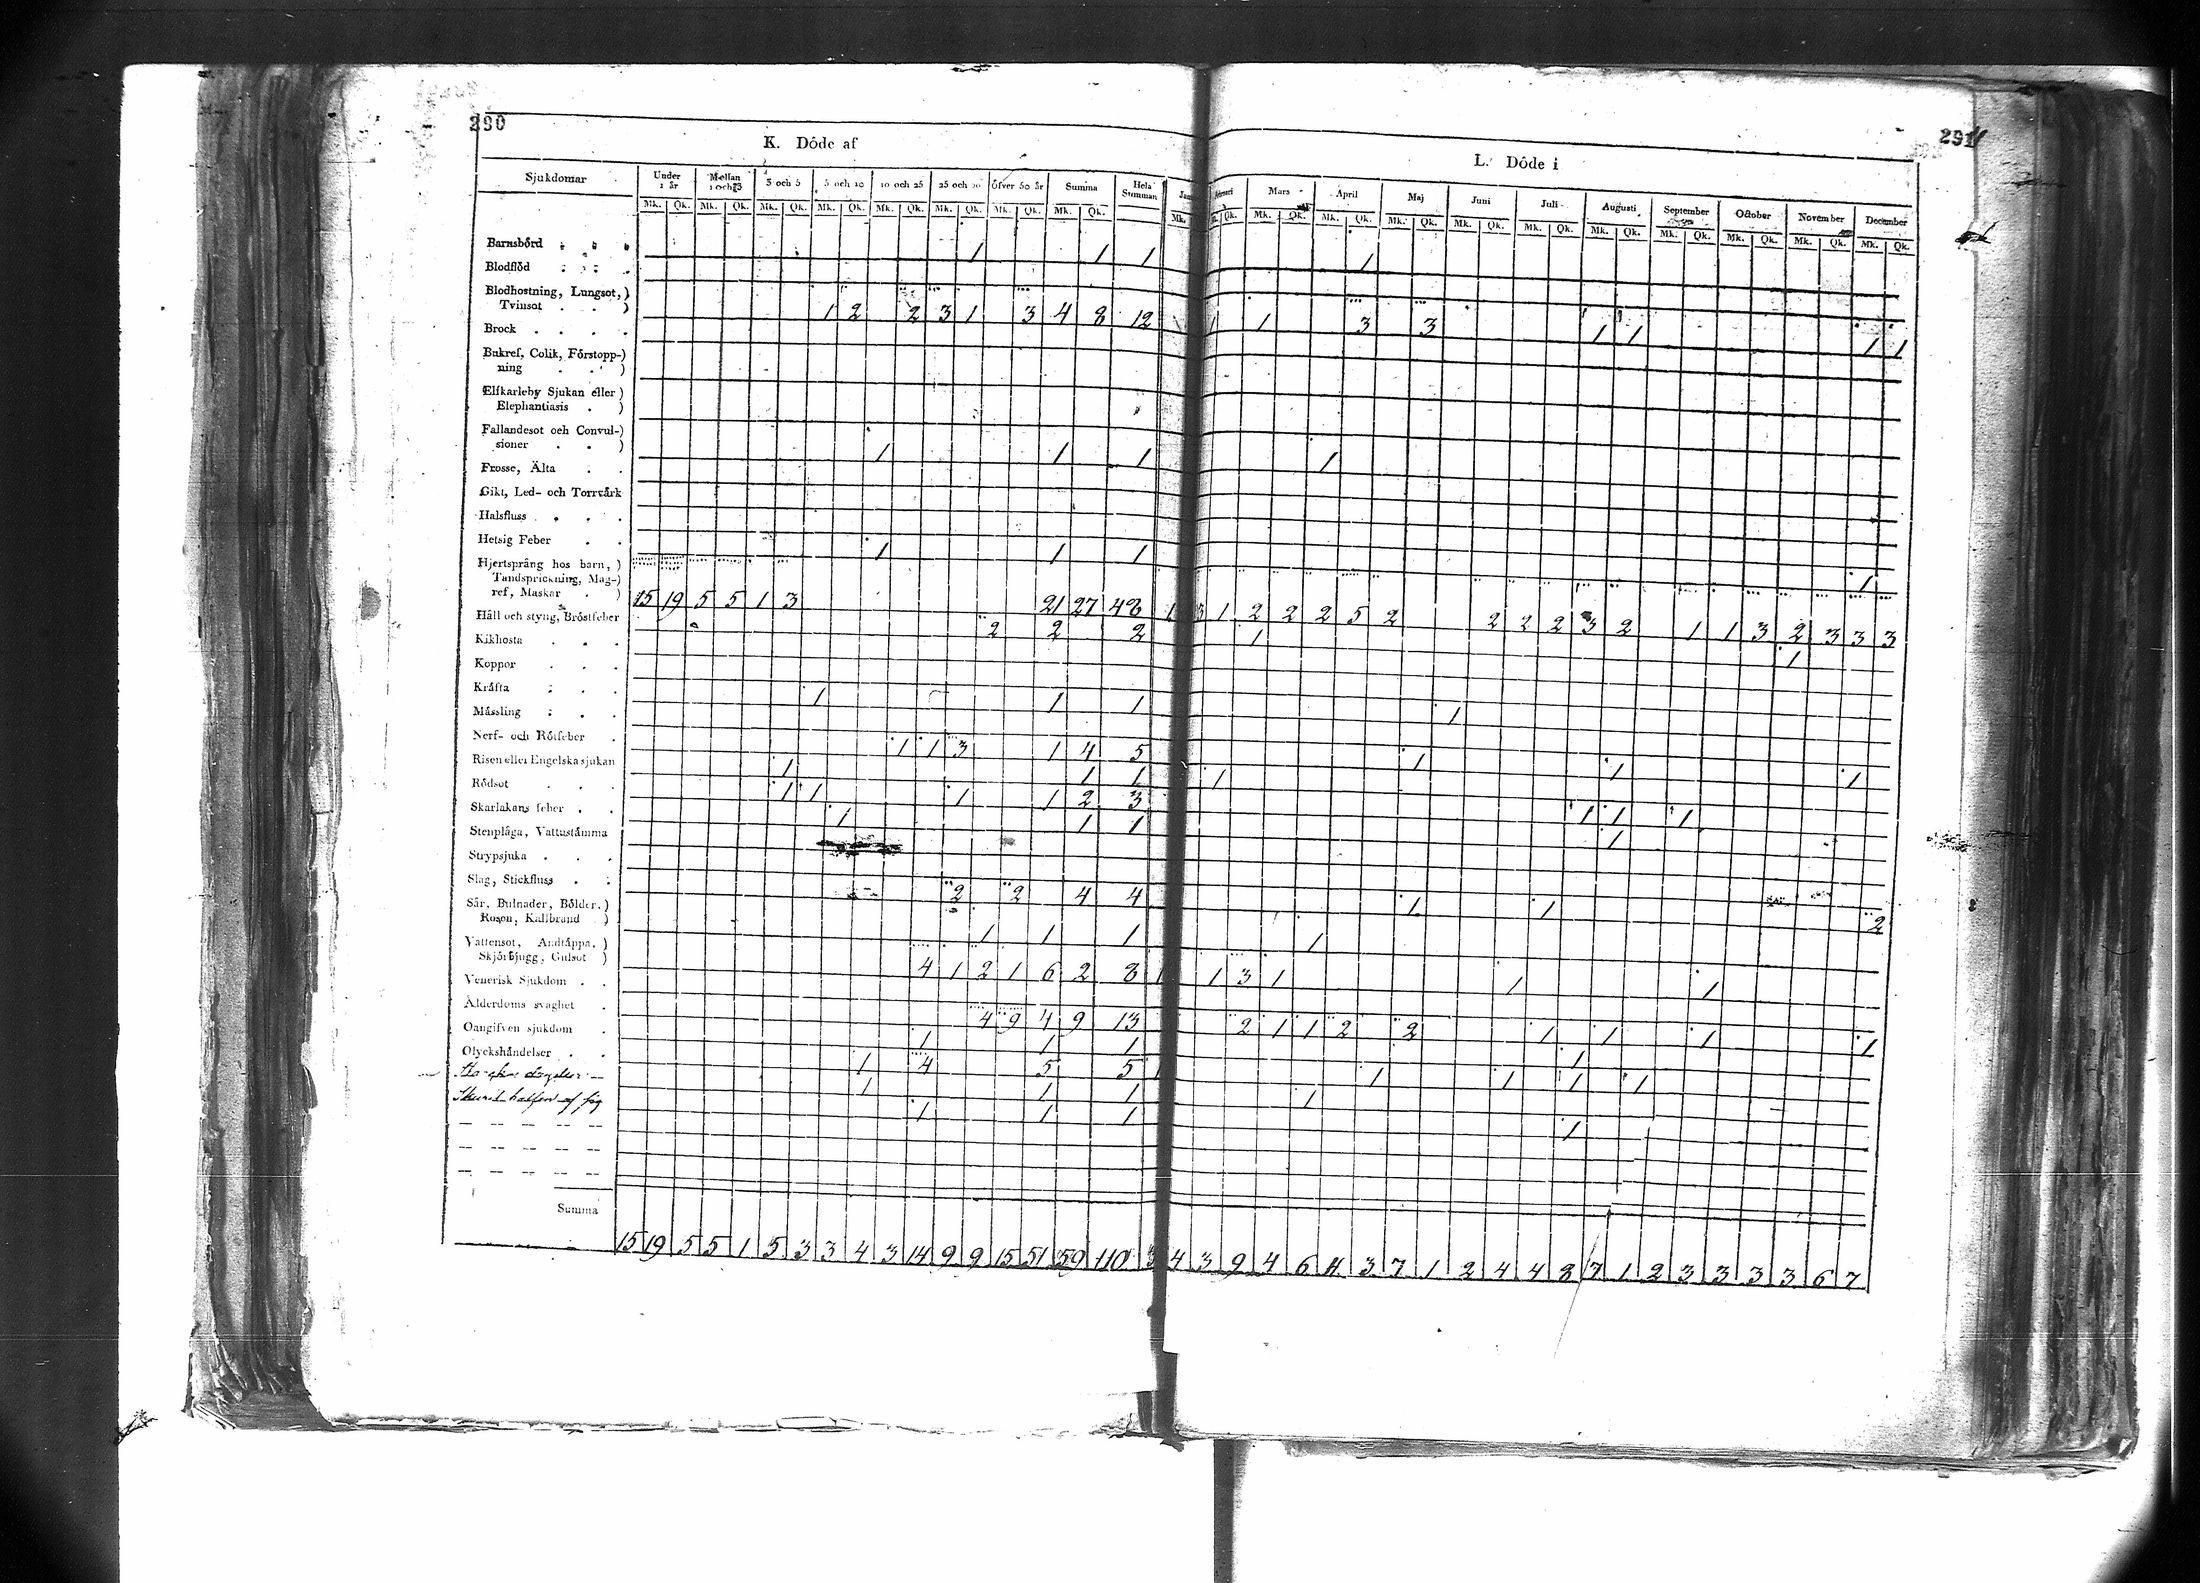 290
K. Döde af
Sjukdomar Under 1 år Mellan 1 och 3 3 och 5 5 och 10 10 och 25 25 och 50 öfver 50 år Summa Hela Summan
Mk. Qk. Mk. Qk. Mk. Qk. Mk. Qk. Mk. Qk. Mk. Qk. Mk. Qk. Mk. Qk.
Barnsbörd . . . 1 1 1
Blodflöd . . .
Blodhostning, Lungsot, )
Tvinsot . . ) 1 2 2 3 1 3 4 8 12
Brock . . . .
Bukref, Colik, Förstopp-)
ning . . )
Elfkarleby Sjukan eller )
Elephantiasis . )
Fallandesot och Convul-)
sioner . . ) 1 1 1
Frosse, Älta . .
Gikt, Led- och Torrvärk
Halsfluss . . . .
Hetsig Feber . . 1 1 1
Hjertsprång hos barn, )
Tandsprickning, Mag-)
ref, Maskar . ) 15 19 5 5 1 3 21 27 48
Håll och styng, Bröstfeber 2 2 2
Kikhosta . . .
Koppor . . .
Kräfta . . . 1 1 1
Mässling . . .
Nerf- och Rötfeber . 1 1 3 1 4 5
Risen eller Engelska sjukan 1 1 1
Rödsot . . . 1 1 1 1 2 3
Skarlakans feber . . 1 1 1
Stenplåga, Vattustämma
Strypsjuka . . .
Slag, Stickfluss . . 2 2 4 4
Sår, Bulnader, Bölder, )
Rosen, Kallbrand ) 1 1 1
Vattensot, Andtäppa, )
Skjörbjugg, Gulsot ) 4 1 2 1 6 2 8
Venerisk Sjukdom . .
Ålderdoms svaghet . 4 9 4 9 13
Oangifven sjukdom . 1 1 1
Olyckshändelser . . 1 4 5 5
1 1 1
af 1 1 1
— — — — —
— — — — —
— — — — —
Summa 15 19 5 5 1 5 3 3 4 3 14 9 9 15 51 59 110
291
L. Döde i
Mars April Maj Juni Juli Augusti September October November December
Mk. Qk. Mk. Qk. Mk. Qk. Mk. Qk. Mk. Qk. Mk. Qk. Mk. Qk. Mk. Qk. Mk. Qk. Mk. Qk.
1
1 3 3 1 1 1 1
1
1
1 2 2 2 5 2 2 2 2 3 2 1 1 3 2 3 3 3
1 1
1
1 1 1
1
1 1 1
1
1 1 2
1
1 3 1 1 1
2 1 1 2 2 1 1 1 1
1
1 1 1 1
1
1
4 3 9 4 6 11 3 7 1 2 4 4 8 7 1 2 3 3 3 3 6 7